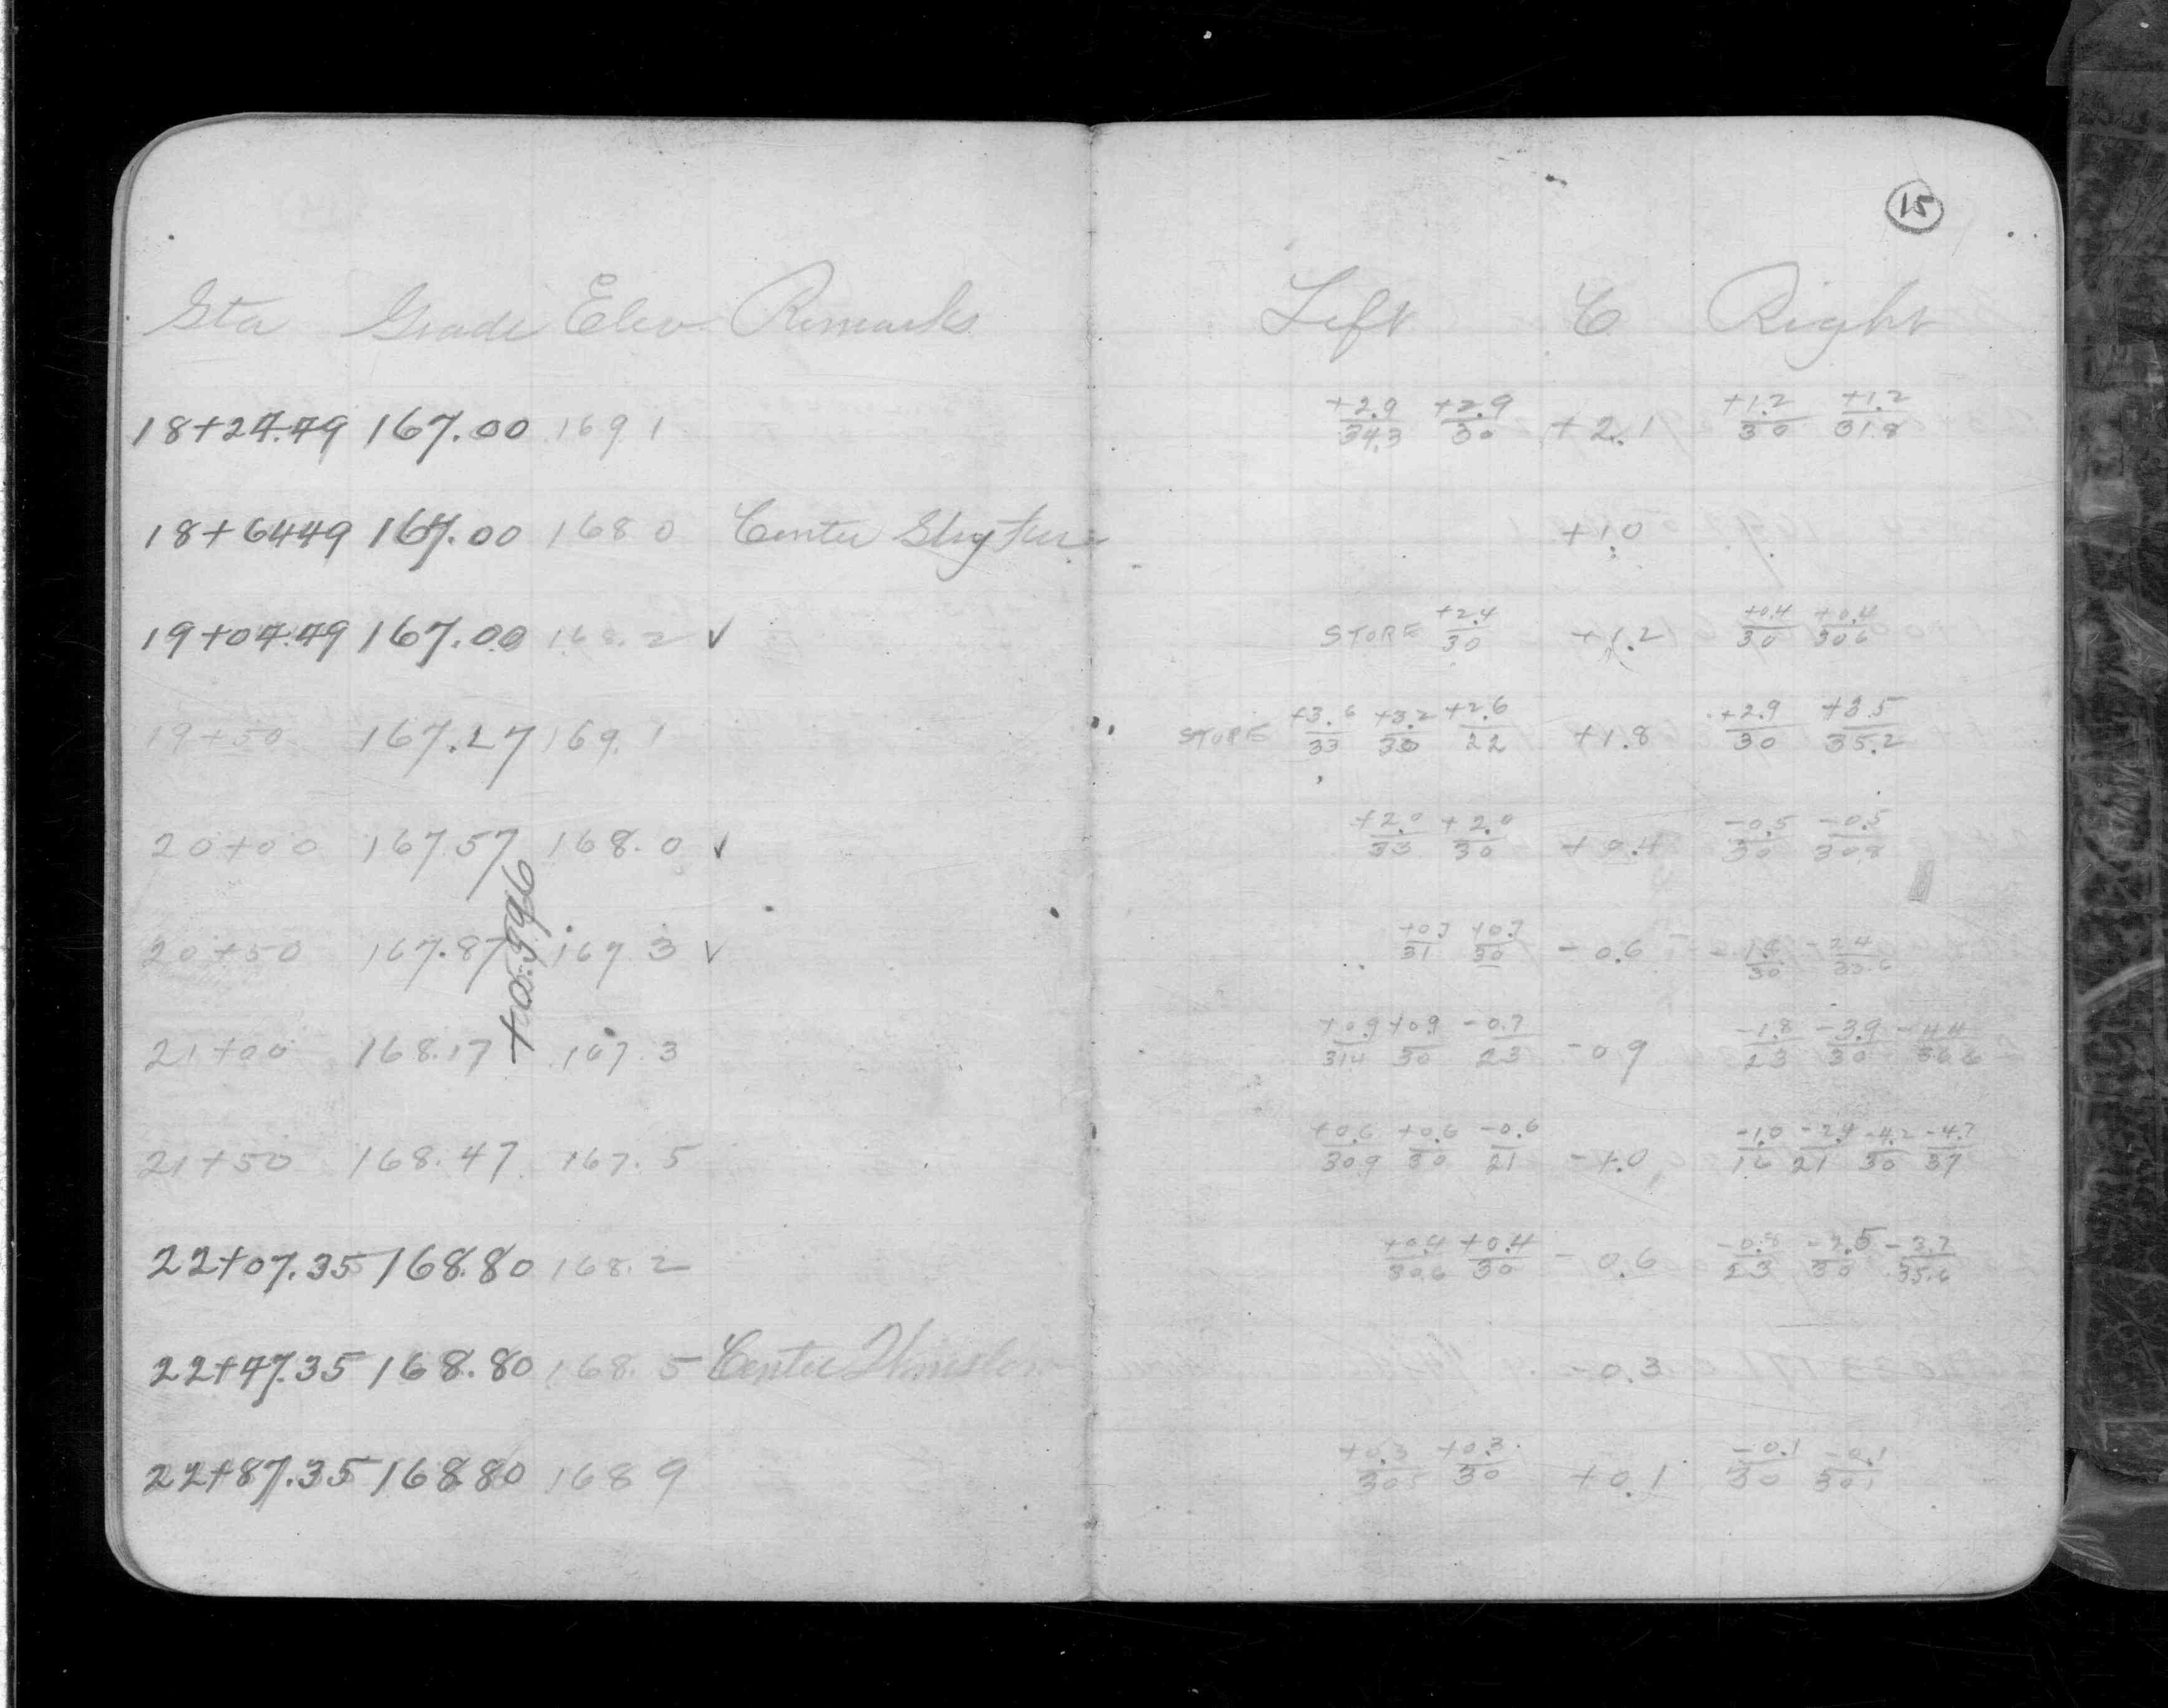 15
Sta Grade Elev Remarks Left C Right
18+24.49 167.00 169.1 +2.9/34.3 +2.9/30 +2.1 +1.2/30 +1.2/31.8
18+64.49 167.00 168.0 Center +1.0
19+04.49 167.00 168.2 ✓ STORE +2.4/30 +1.2 +0.4/30 +0.4/30.6
19+50 167.27 169.1 STORE +3.6/33 +3.2/30 +2.6/22 +1.8 +2.9/30 +3.5/35.2
20+00 167.57 168.0 ✓ +2.0/33 +2.0/30 +0.4 -0.5/30 -0.5/30.8
20+50 167.87 167.3 ✓ +0.7/31 +0.7/30 -0.6 -1.4/30 -2.4/33.6
+00.5996
21+00 168.17 167.3 +0.9/31.4 +0.9/30 -0.7/23 -0.9 -1.8/23 -3.9/30 -4.4/36.6
21+50 168.47 167.5 +0.6/30.9 +0.6/30 -0.6/21 -1.0 -1.0/16 -2.4/21 -4.2/30 -4.7/37
22+07.35 168.80 168.2 +0.4/30.6 +0.4/30 -0.6 -0.8/23 -2.5/30 -3.7/35.6
22+47.35 168.80 168.5 Center Winslow -0.3
22+87.35 168.80 168.9 +0.3/30.5 +0.3/30 +0.1 -0.1/30 -0.1/30.1